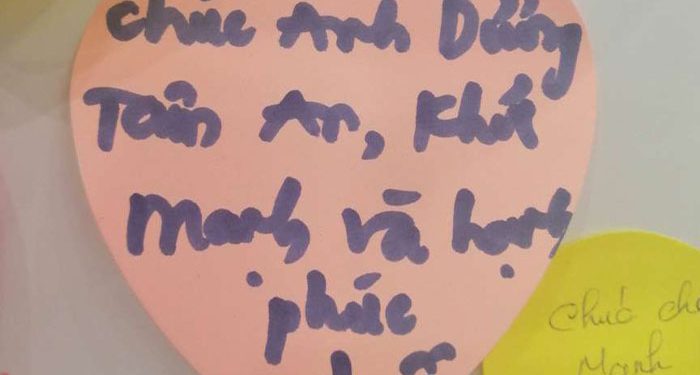 chúc Anh Dương
Toàn An, Khoẻ
Mạnh và hạnh
phúc
Chúc ch
Mạnh